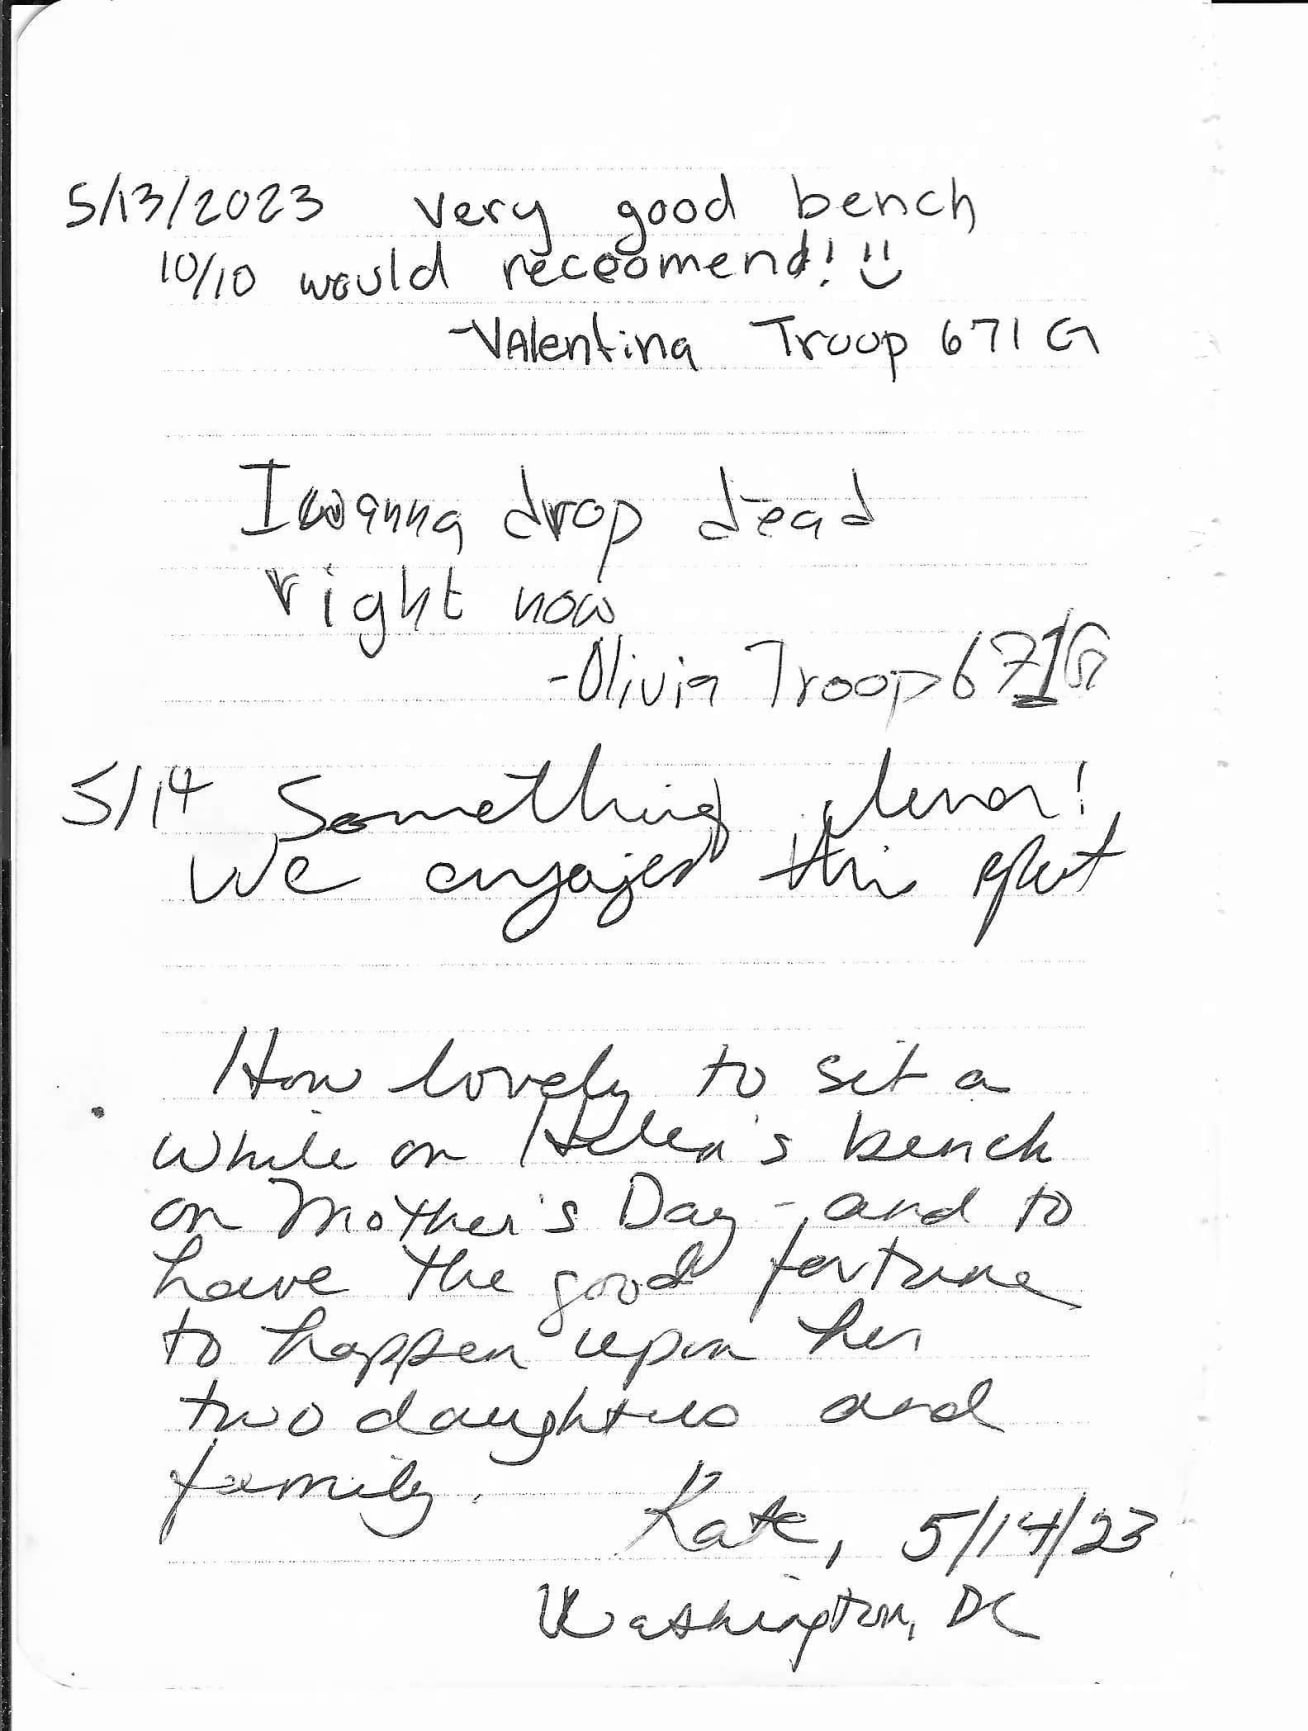 5/13/2023 very good bench
10/10 would receomend! :)
-Valentina Troop 671 G
I wanna drop dead
right now
-Olivia Troop 671G
5/14 Something clever!
We enjoyed this spot
How lovely to sit a
while on Helen's bench
on Mother's Day - and to
have the good fortune
to happen upon her
two daughters and
family.
Kate, 5/14/23
Washington, DC